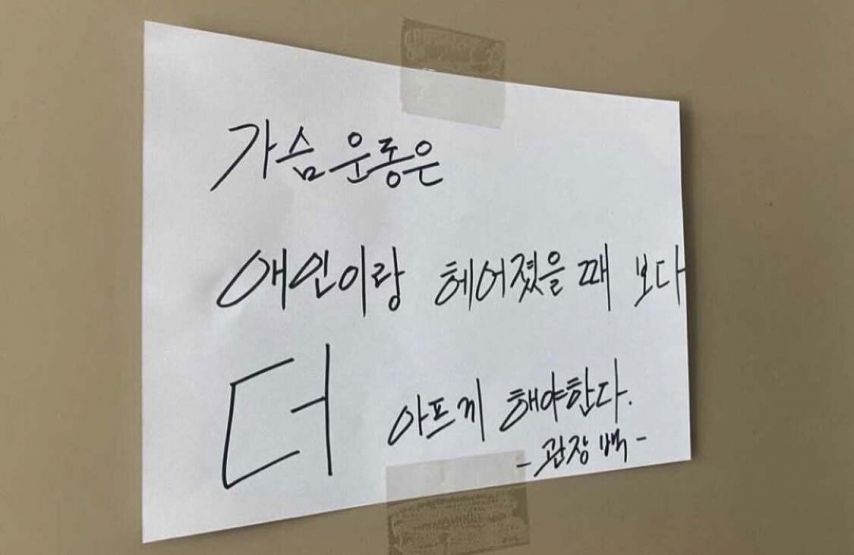 가슴 운동은
애인이랑 헤어졌을때 보다
더 아프게 해야한다.
- 관장 백 -